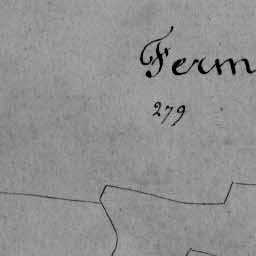 Ferm
279